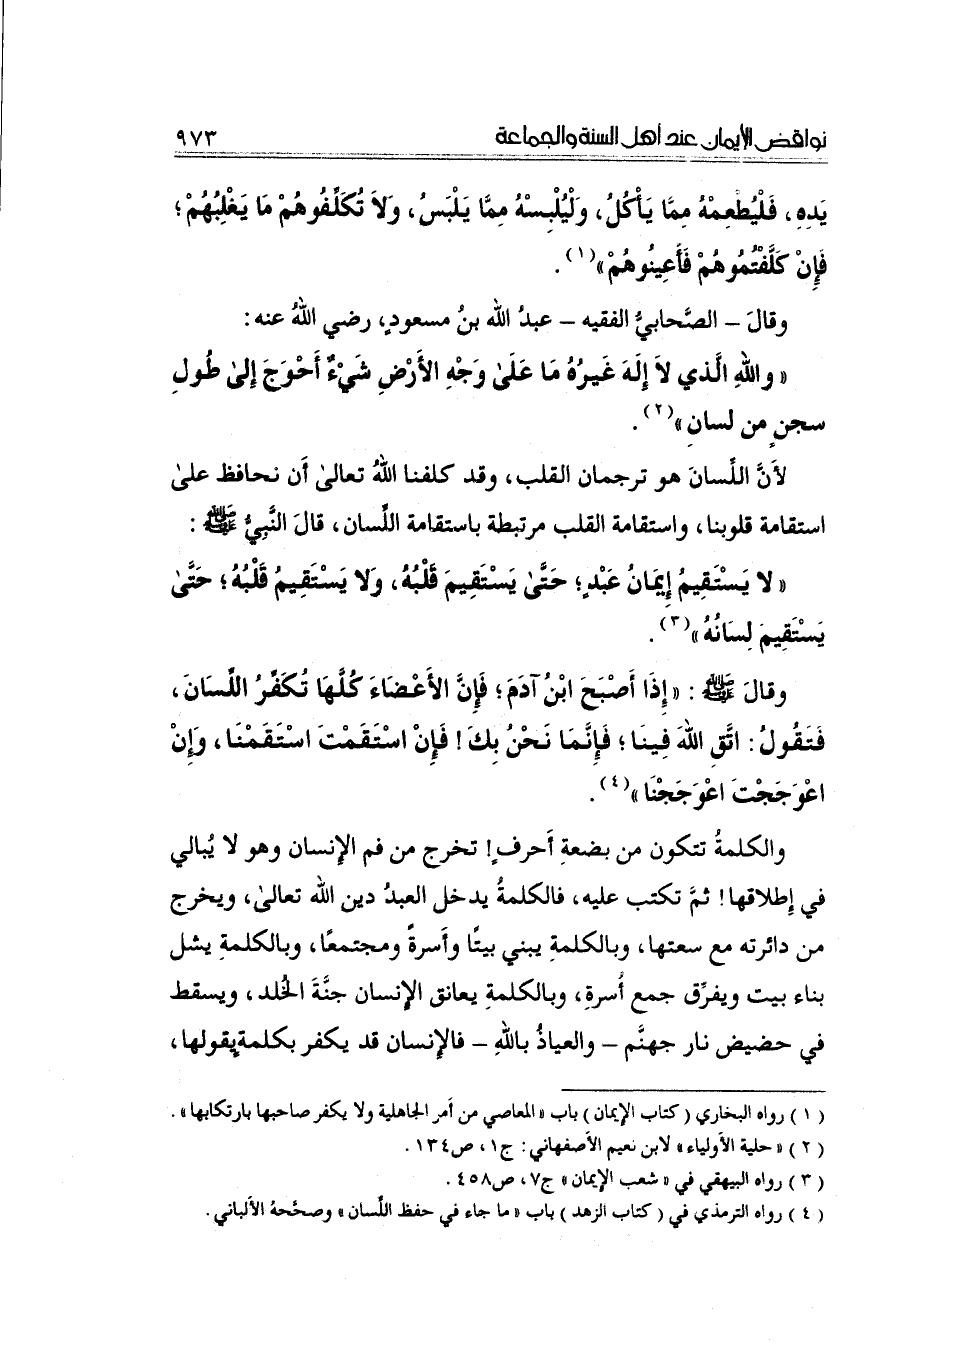 نواقض الإيمان عند أهل السنة والجماعة ٩٧٣
يَدِهِ، فَلْيُطْعِمْهُ مِمَّا يَأْكُلُ، وَلْيُلْبِسْهُ مِمَّا يَلْبَسُ، وَلاَ تُكَلِّفُوهُمْ مَا يَغْلِبُهُمْ؛
فَإِنْ كَلَّفْتُمُوهُمْ فَأَعِينُوهُمْ»(١).
وقالَ – الصَّحابيُّ الفقيه – عبدُ الله بنُ مسعودٍ، رضي اللهُ عنه:
«واللهِ الَّذي لاَ إِلَهَ غَيرُهُ مَا عَلَىٰ وَجْهِ الأَرْضِ شَيْءٌ أَحْوَجَ إلىٰ طُولِ
سجنٍ من لسانٍ»(٢).
لأَنَّ اللِّسانَ هو ترجمان القلب، وقد كلفنا اللهُ تعالىٰ أن نحافظ علىٰ
استقامة قلوبنا، واستقامة القلب مرتبطة باستقامة اللِّسان، قالَ النَّبِيُّ ﷺ:
«لا يَسْتَقِيمُ إِيمَانُ عَبْدٍ؛ حَتَّىٰ يَسْتَقِيمَ قَلْبُهُ، وَلا يَسْتَقِيمُ قَلْبُهُ؛ حَتَّىٰ
يَسْتَقِيمَ لِسَانُهُ»(٣).
وقالَ ﷺ: «إِذَا أَصْبَحَ ابْنُ آدَمَ؛ فَإِنَّ الأَعْضَاءَ كُلَّهَا تُكَفِّرُ اللِّسَانَ،
فَتَقُولُ: اتَّقِ اللهَ فِينَا؛ فَإِنَّمَا نَحْنُ بِكَ! فَإِنْ اسْتَقَمْتَ اسْتَقَمْنَا، وَإِنْ
اعْوَجَجْتَ اعْوَجَجْنَا»(٤).
والكلمةُ تتكون من بضعةِ أحرفٍ! تخرج من فم الإنسان وهو لا يُبالي
في إطلاقها! ثمَّ تكتب عليه، فالكلمةُ يدخل العبدُ دين الله تعالىٰ، ويخرج
من دائرته مع سعتها، وبالكلمةِ يبني بيتًا وأسرةً ومجتمعًا، وبالكلمةِ يشل
بناء بيت ويفرِّق جمع أسرةِ، وبالكلمةِ يعانق الإنسان جنَّةَ الخُلد، ويسقط
في حضيض نار جهنَّم – والعياذُ باللهِ – فالإنسان قد يكفر بكلمةٍ يقولها،
(١) رواه البخاري (كتاب الإيمان) باب «المعاصي من أمر الجاهلية ولا يكفر صاحبها بارتكابها».
(٢) «حلية الأولياء» لابن نعيم الأصفهاني: ج١، ص١٣٤.
(٣) رواه البيهقي في «شعب الإيمان» ج٧، ص٤٥٨.
(٤) رواه الترمذي في (كتاب الزهد) باب «ما جاء في حفظ اللِّسان» وصحَّحهُ الألباني.